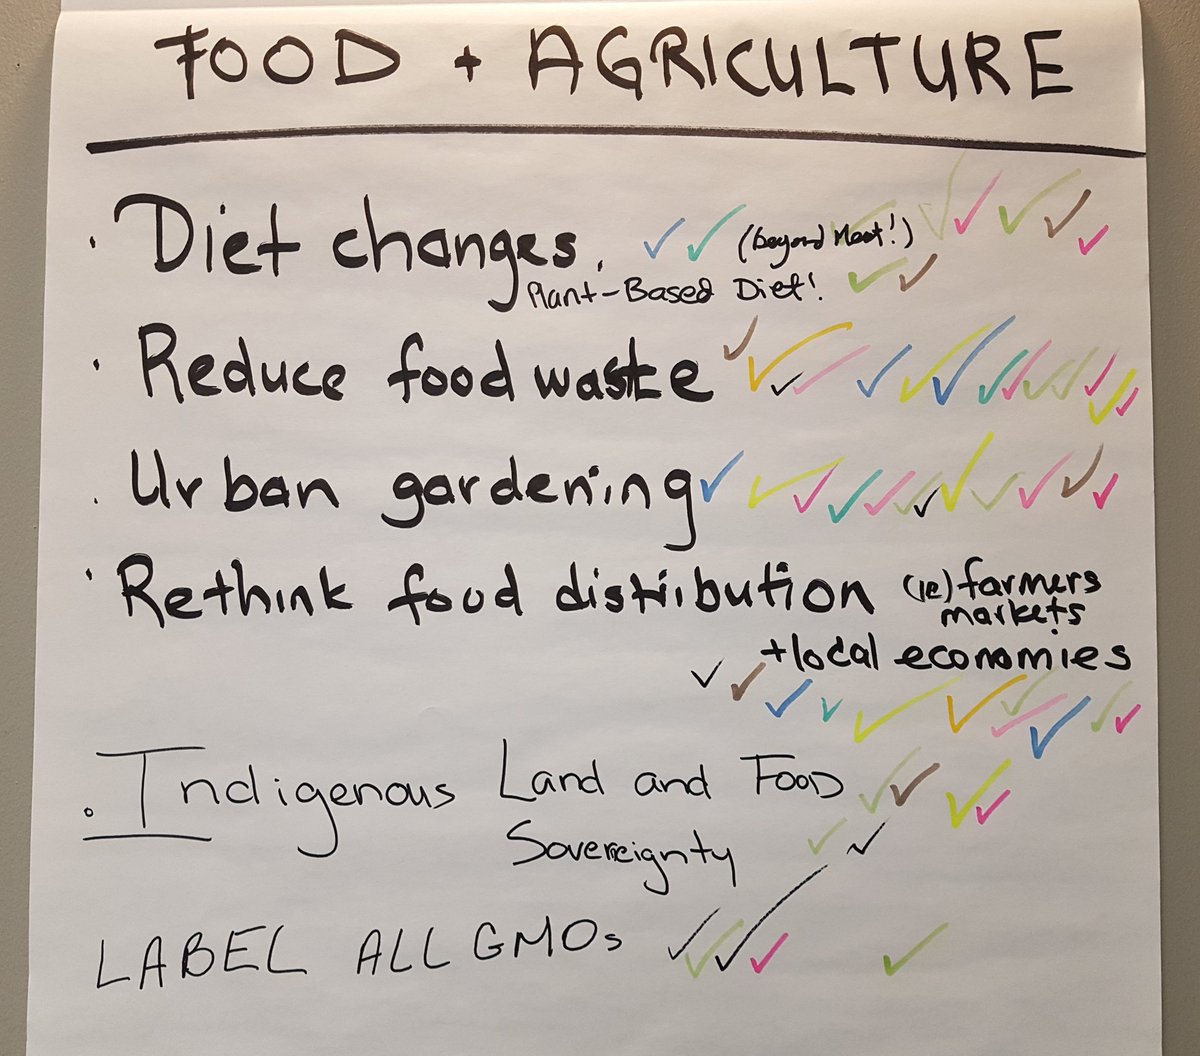 FOOD + AGRICULTURE
· Diet changes. (beyond Meat!)
Plant-Based Diet!
· Reduce food waste
· Urban gardening
· Rethink food distribution (ie) farmers
markets
+ local economies
· Indigenous Land and Food
Sovereignty
LABEL ALL GMOs